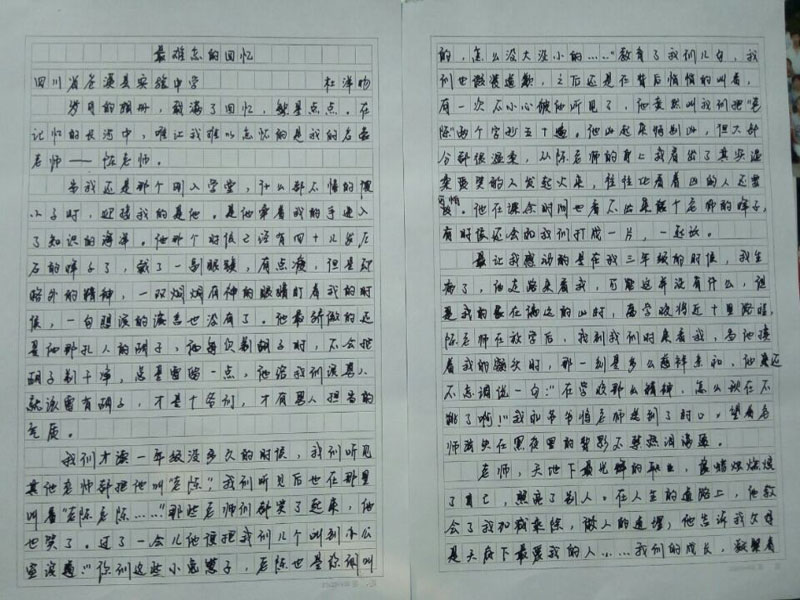 最难忘的回忆
四川省苍溪县实验中学 杜洋昀
岁月的相册，载满了回忆，繁星点点。在
记忆的长河中，唯让我难以忘怀的是我的启蒙
老师——陈老师。
当我还是那个刚入学堂，什么都不懂的
小子时，迎接我的是他。是他牵着我的手进入
了知识的海洋。他那个时候已经有四十几岁左
右的样子了，戴了一副眼镜，有点瘦，但是却
格外的精神，一双炯炯有神的眼睛盯着我的时
候，一句撒谎的话也没有了。他最骄傲的还
是他那扎人的胡子，他每次剃胡子时，不会把
胡子剃干净，总是要留一点，他给我们说男人
就该留有胡子，才是个爷们，才有男人担当的
气质。
我们才读一年级没多久的时候，我们听见
其他老师都把他叫“老陈”，我们听见后也在那里
叫着“老陈老陈……”那些老师们都笑了起来，他
也笑了。过了一会儿他便把我们几个叫到办公
室说道：“你们这些小鬼崽子，老陈也是你们叫
的，怎么没大没小的……”教育了我们几句，我
们也假装道歉，之后还是在背后悄悄的叫着，
有一次不小心被他听见了，他竟然叫我们把“老
陈”两个字抄五十遍。他凶起来特别凶，但大部
分都很温柔，从陈老师的身上我看出了其实温
柔爱笑的人发起火来，往往比看着凶的人还要
可怕。他在课余时间也看不出来是个老师的样子，
有时候还会和我们打成一片，一起玩。
最让我感动的是在我三年级的时候，我生
病了，他走路来看我，可能这并没有什么，但
是我的家在偏远的山村，离学校将近十里路程，
陈老师在放学后，我到我们村来看我，当他摸
着我的额头时，那一刻是多么慈祥亲和，他还
不忘调侃一句：“在学校那么精神，怎么现在不
跳了啊！”我和爷爷将老师送到了村口。望着老
师消失在黑夜里的背影不禁热泪满面。
老师，天地下最光辉的职业，像蜡烛燃烧
了自己，照亮了别人。在人生的道路上，他教
会了我加减乘除，做人的道理；他告诉我父母
是天底下最爱我的人……我们的成长，凝聚着